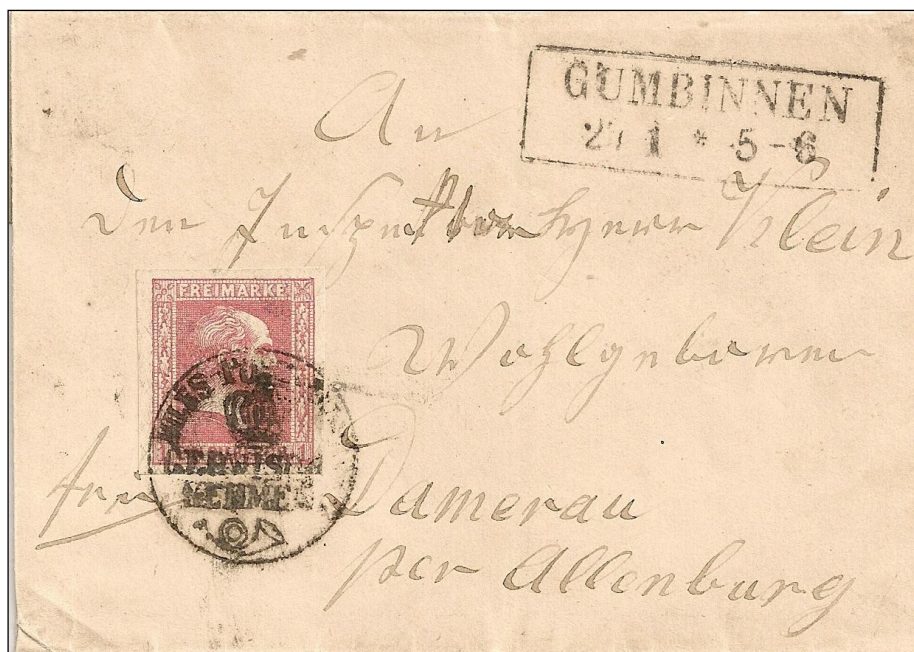 GUMBINNEN
1 * 5-6
An
Den Inspektor Herrn Klein
Wohlgeboren
FREIMARKE
frei
Damerau
per Allenburg